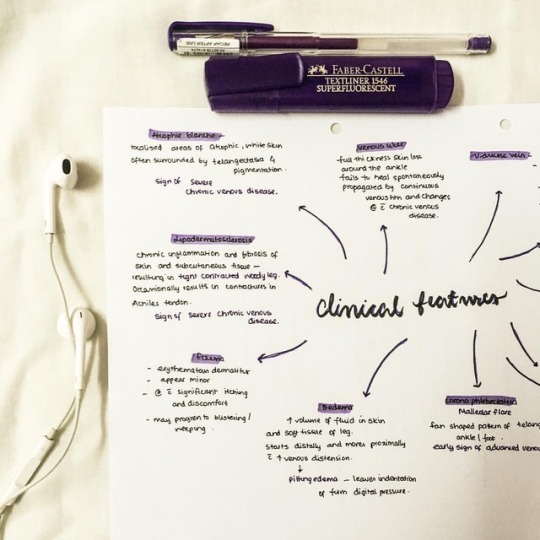 RECAP AFTER USE
FABER-CASTELL
TEXTLINER 1546
SUPERFLUORESCENT
Atrophie blanche -
localised areas of atrophic, white skin
often surrounded by telangectasia &
pigmentation.
sign of severe
chronic venous disease.
venous ulcer
- full thickness skin loss
around the ankle
fails to heal spontaneously
propagated by continuous
venous htn and changes
@ c̄ chronic venous
disease.
Varicose vein -
Lipodermatosclerosis
chronic inflammation and fibrosis of
skin and subcutaneous tissue -
resulting in tight contracted woody leg.
Occasionally results in contractures in
Achiles tendon.
sign of severe chronic venous
disease.
clinical features
Eczema
- erythematous dermatitis
- appear minor
- @ c̄ significant itching
and discomfort
- may progress to blistering /
weeping.
Oedema
↑ volume of fluid in skin
and soft tissue of leg.
starts distally and moves proximally
c̄ ↑ venous distension.
↓
pitting edema - leaves indentation
of firm digital pressure.
corona phlebectatica
Malleolar flare
fan shaped pattern of telang
ankle / foot.
early sign of advanced venou